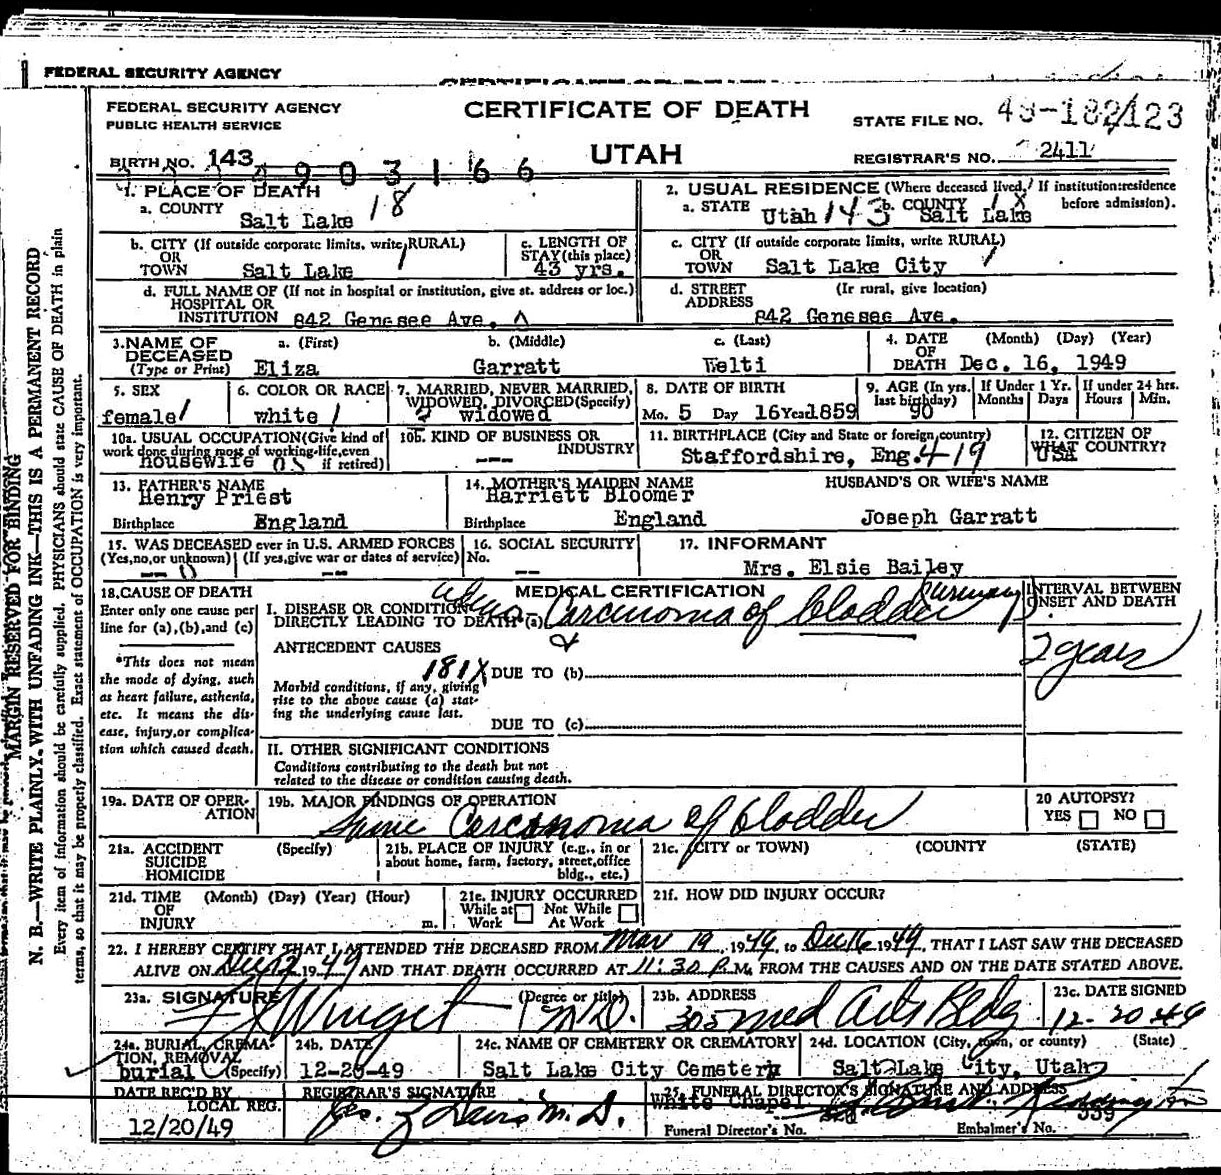 FEDERAL SECURITY AGENCY
FEDERAL SECURITY AGENCY
PUBLIC HEALTH SERVICE
CERTIFICATE OF DEATH
STATE FILE NO.
BIRTH NO. 143
4 9 0 3 1 6 6
UTAH
REGISTRAR'S NO. 2411
1. PLACE OF DEATH
a. COUNTY Salt Lake 18
2. USUAL RESIDENCE (Where deceased lived. If institution:residence before admission).
a. STATE Utah 143 b. COUNTY Salt Lake
b. CITY (If outside corporate limits, write RURAL)
OR
TOWN Salt Lake
c. LENGTH OF
STAY (this place)
43 yrs.
c. CITY (If outside corporate limits, write RURAL)
OR
TOWN Salt Lake City
d. FULL NAME OF (If not in hospital or institution, give st. address or loc.)
HOSPITAL OR
INSTITUTION 842 Genesee Ave.
d. STREET (If rural, give location)
ADDRESS
842 Genesee Ave.
3. NAME OF DECEASED (Type or Print)
a. (First) Eliza
b. (Middle) Garratt
c. (Last) Welti
4. DATE OF DEATH (Month) (Day) (Year)
Dec. 16, 1949
5. SEX
female
6. COLOR OR RACE
white
7. MARRIED, NEVER MARRIED, WIDOWED, DIVORCED (Specify)
2 widowed
8. DATE OF BIRTH
Mo. 5 Day 16 Year 1859
9. AGE (In yrs. last birthday)
90
If Under 1 Yr. Months Days
If under 24 hrs. Hours Min.
10a. USUAL OCCUPATION (Give kind of work done during most of working life, even if retired)
housewife
10b. KIND OF BUSINESS OR INDUSTRY
---
11. BIRTHPLACE (City and State or foreign country)
Staffordshire, Eng. 419
12. CITIZEN OF WHAT COUNTRY?
USA
13. FATHER'S NAME
Henry Priest
Birthplace England
14. MOTHER'S MAIDEN NAME
Harriett Bloomer
Birthplace England
HUSBAND'S OR WIFE'S NAME
Joseph Garratt
15. WAS DECEASED ever in U.S. ARMED FORCES
(Yes, no, or unknown) (If yes, give war or dates of service)
-- 0 --
16. SOCIAL SECURITY
No. --
17. INFORMANT
Mrs. Elsie Bailey
18. CAUSE OF DEATH
Enter only one cause per
line for (a), (b), and (c)
*This does not mean
the mode of dying, such
as heart failure, asthenia,
etc. It means the dis-
ease, injury, or complica-
tion which caused death.
MEDICAL CERTIFICATION
I. DISEASE OR CONDITION
DIRECTLY LEADING TO DEATH* (a) Carcinoma of bladder
INTERVAL BETWEEN
ONSET AND DEATH
2 years
ANTECEDENT CAUSES
181X
DUE TO (b)
Morbid conditions, if any, giving
rise to the above cause (a) stat-
ing the underlying cause last.
DUE TO (c)
II. OTHER SIGNIFICANT CONDITIONS
Conditions contributing to the death but not
related to the disease or condition causing death.
19a. DATE OF OPER-
ATION
19b. MAJOR FINDINGS OF OPERATION
Same Carcinoma of bladder
20 AUTOPSY?
YES NO
21a. ACCIDENT (Specify)
SUICIDE
HOMICIDE
21b. PLACE OF INJURY (e.g., in or
about home, farm, factory, street, office
bldg., etc.)
21c. (CITY or TOWN) (COUNTY) (STATE)
21d. TIME (Month) (Day) (Year) (Hour)
OF
INJURY m.
21e. INJURY OCCURRED
While at Work Not While At Work
21f. HOW DID INJURY OCCUR?
22. I HEREBY CERTIFY THAT I ATTENDED THE DECEASED FROM Mar 19, 1949, to Dec 16 1949, THAT I LAST SAW THE DECEASED
ALIVE ON Dec 12 1949 AND THAT DEATH OCCURRED AT 11:30 P.M. FROM THE CAUSES AND ON THE DATE STATED ABOVE.
23a. SIGNATURE (Degree or title)
Winget M.D.
23b. ADDRESS
305 Med Arts Bldg
23c. DATE SIGNED
12-20-49
24a. BURIAL, CREMA-
TION, REMOVAL
burial (Specify)
24b. DATE
12-20-49
24c. NAME OF CEMETERY OR CREMATORY
Salt Lake City Cemetery
24d. LOCATION (City, town, or county) (State)
Salt Lake City, Utah
DATE REC'D BY
LOCAL REG.
12/20/49
REGISTRAR'S SIGNATURE
25. FUNERAL DIRECTOR'S SIGNATURE AND ADDRESS
White Chapel
Funeral Director's No.
Embalmer's No. 339
MARGIN RESERVED FOR BINDING
N. B.—WRITE PLAINLY, WITH UNFADING INK—THIS IS A PERMANENT RECORD
Every item of information should be carefully supplied. PHYSICIANS should state CAUSE OF DEATH in plain
terms, so that it may be properly classified. Exact statement of OCCUPATION is very important.